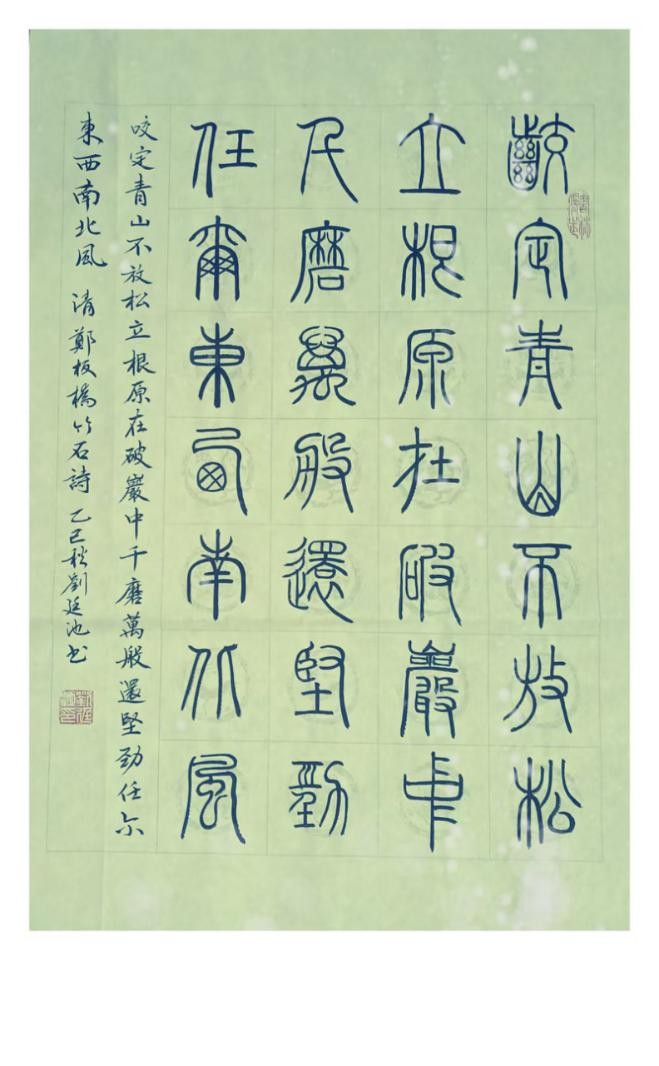 齩定青山不放松
立根原在破巖中
千磨萬般還堅勁
任爾東西南北風
咬定青山不放松立根原在破巖中千磨萬般還堅勁任尔
東西南北風 清鄭板橋竹石詩 乙巳秋劉廷池书